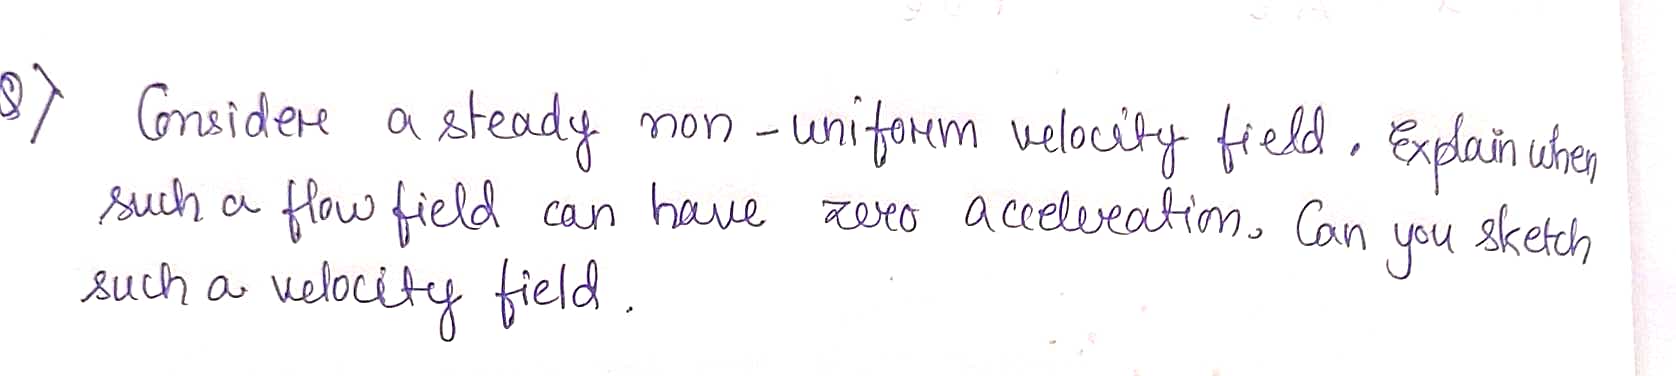 Q) Consider a steady non-uniform velocity field. Explain when
such a flow field can have zero acceleration. Can you sketch
such a velocity field.